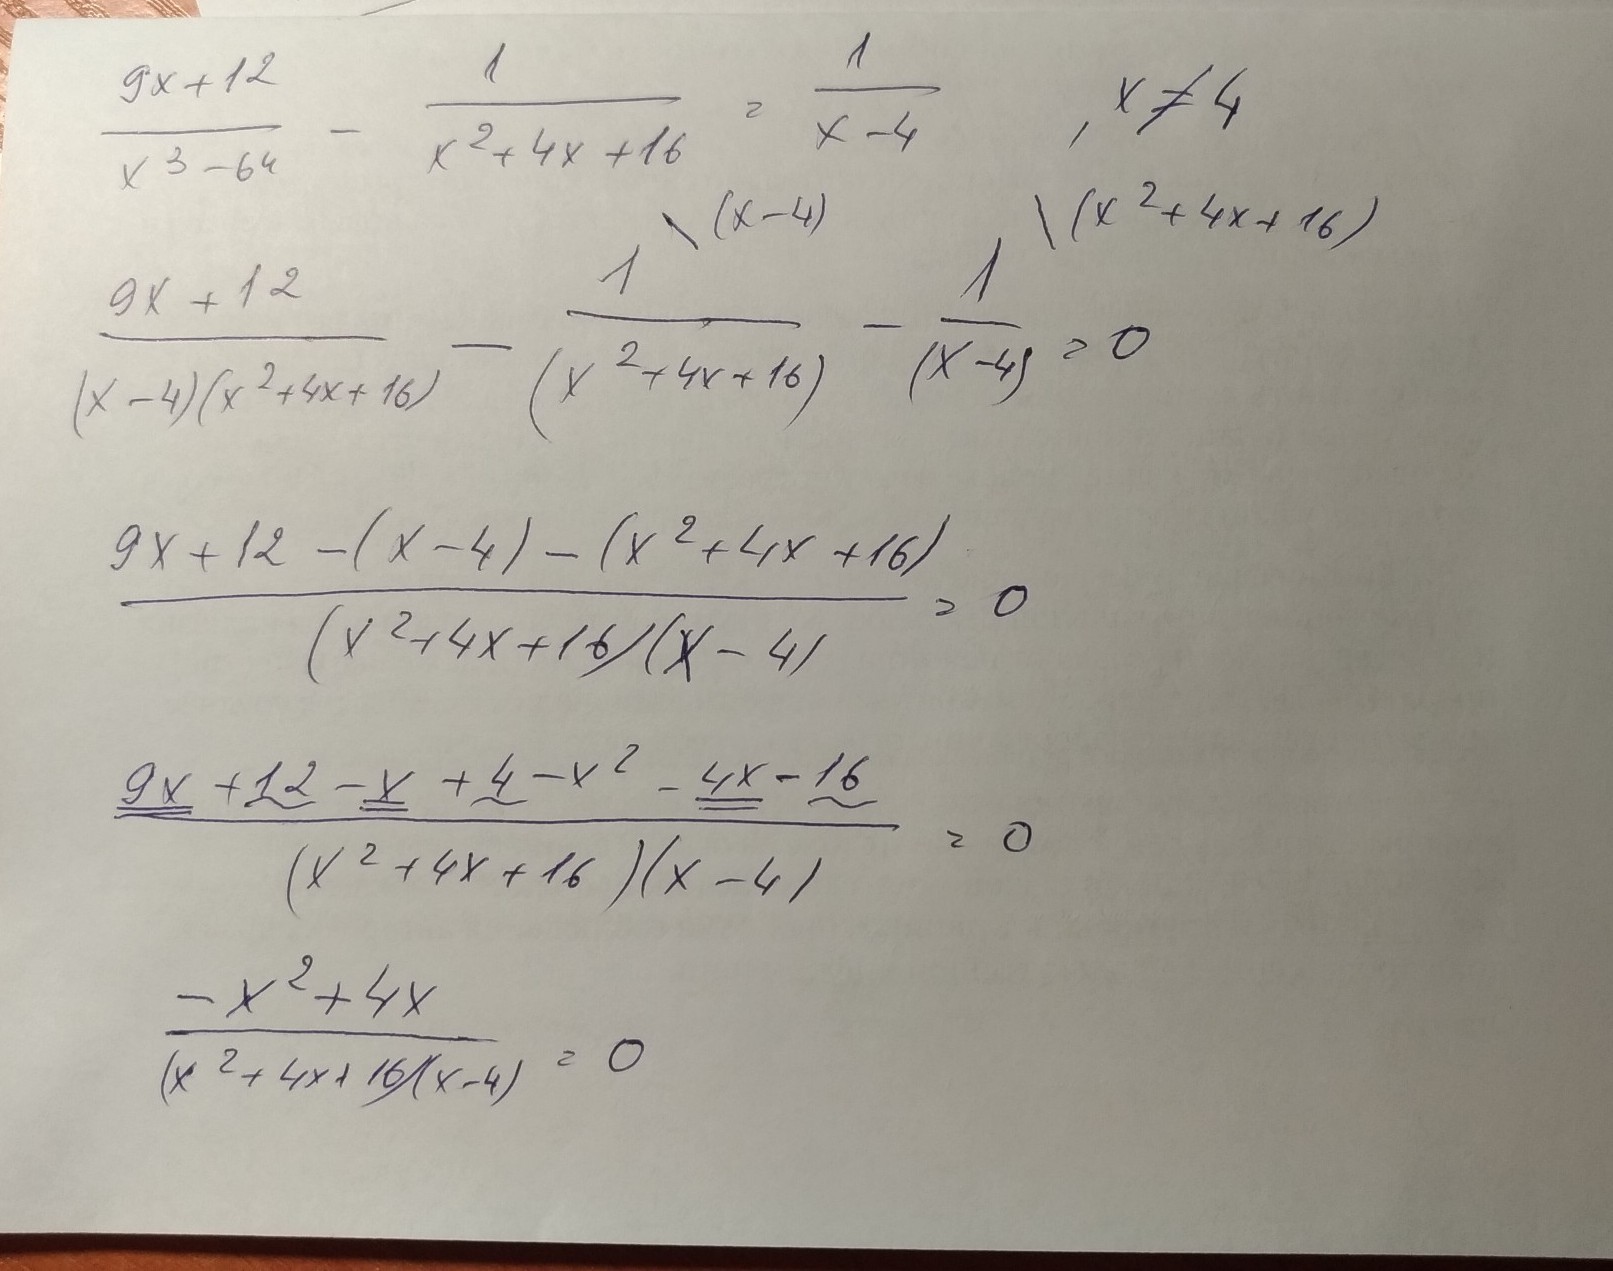 (9x+12)/(x³-64) - 1/(x²+4x+16) = 1/(x-4) , x≠4
(9x+12)/((x-4)(x²+4x+16)) - 1\(x-4)/(x²+4x+16) - 1\(x²+4x+16)/(x-4) = 0
(9x+12-(x-4)-(x²+4x+16))/((x²+4x+16)(x-4)) = 0
(9x+12-x+4-x²-4x-16)/((x²+4x+16)(x-4)) = 0
(-x²+4x)/((x²+4x+16)(x-4)) = 0